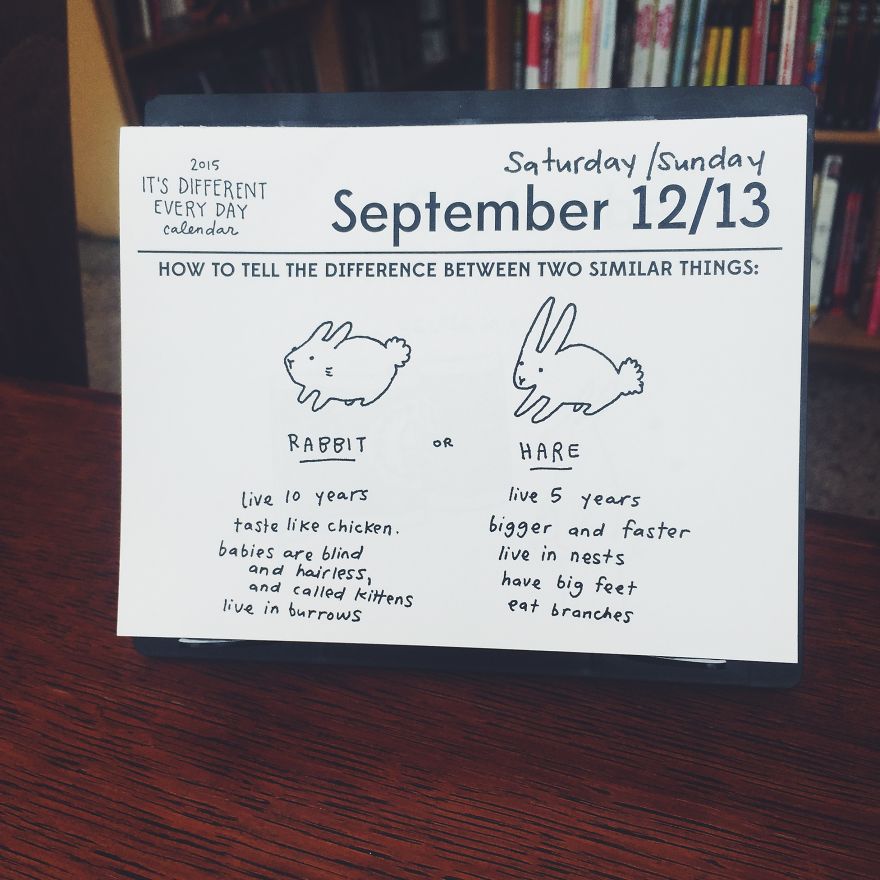 2015
IT'S DIFFERENT
EVERY DAY
calendar
Saturday/Sunday
September 12/13
HOW TO TELL THE DIFFERENCE BETWEEN TWO SIMILAR THINGS:
RABBIT OR HARE
live 10 years
taste like chicken.
babies are blind
and hairless,
and called kittens
live in burrows
live 5 years
bigger and faster
live in nests
have big feet
eat branches